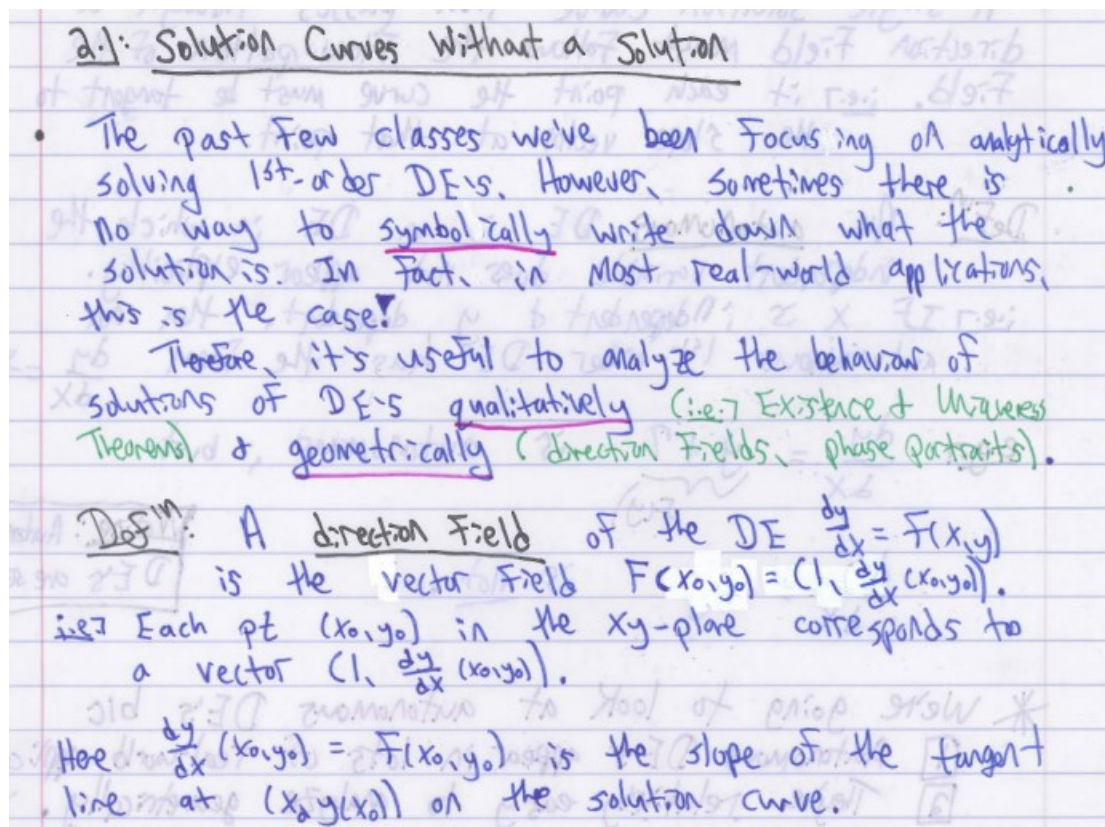 2.1: Solution Curves Without a Solution
• The past few classes we've been focusing on analytically
solving 1st-order DE's. However, sometimes there is
no way to symbolically write down what the
solution is. In fact, in most real-world applications,
this is the case!
Therefore, it's useful to analyze the behaviour of
solutions of DE's qualitatively (i.e.7 Existence & Uniqueness
Theorems) & geometrically (direction fields, phase portraits).
Def'n: A direction field of the DE dy/dx = F(x,y)
is the vector field F(x₀,y₀) = (1, dy/dx (x₀,y₀)).
i.e.7 Each pt (x₀,y₀) in the xy-plane corresponds to
a vector (1, dy/dx (x₀,y₀)).
Here dy/dx (x₀,y₀) = F(x₀,y₀) is the slope of the tangent
line at (x₀,y(x₀)) on the solution curve.